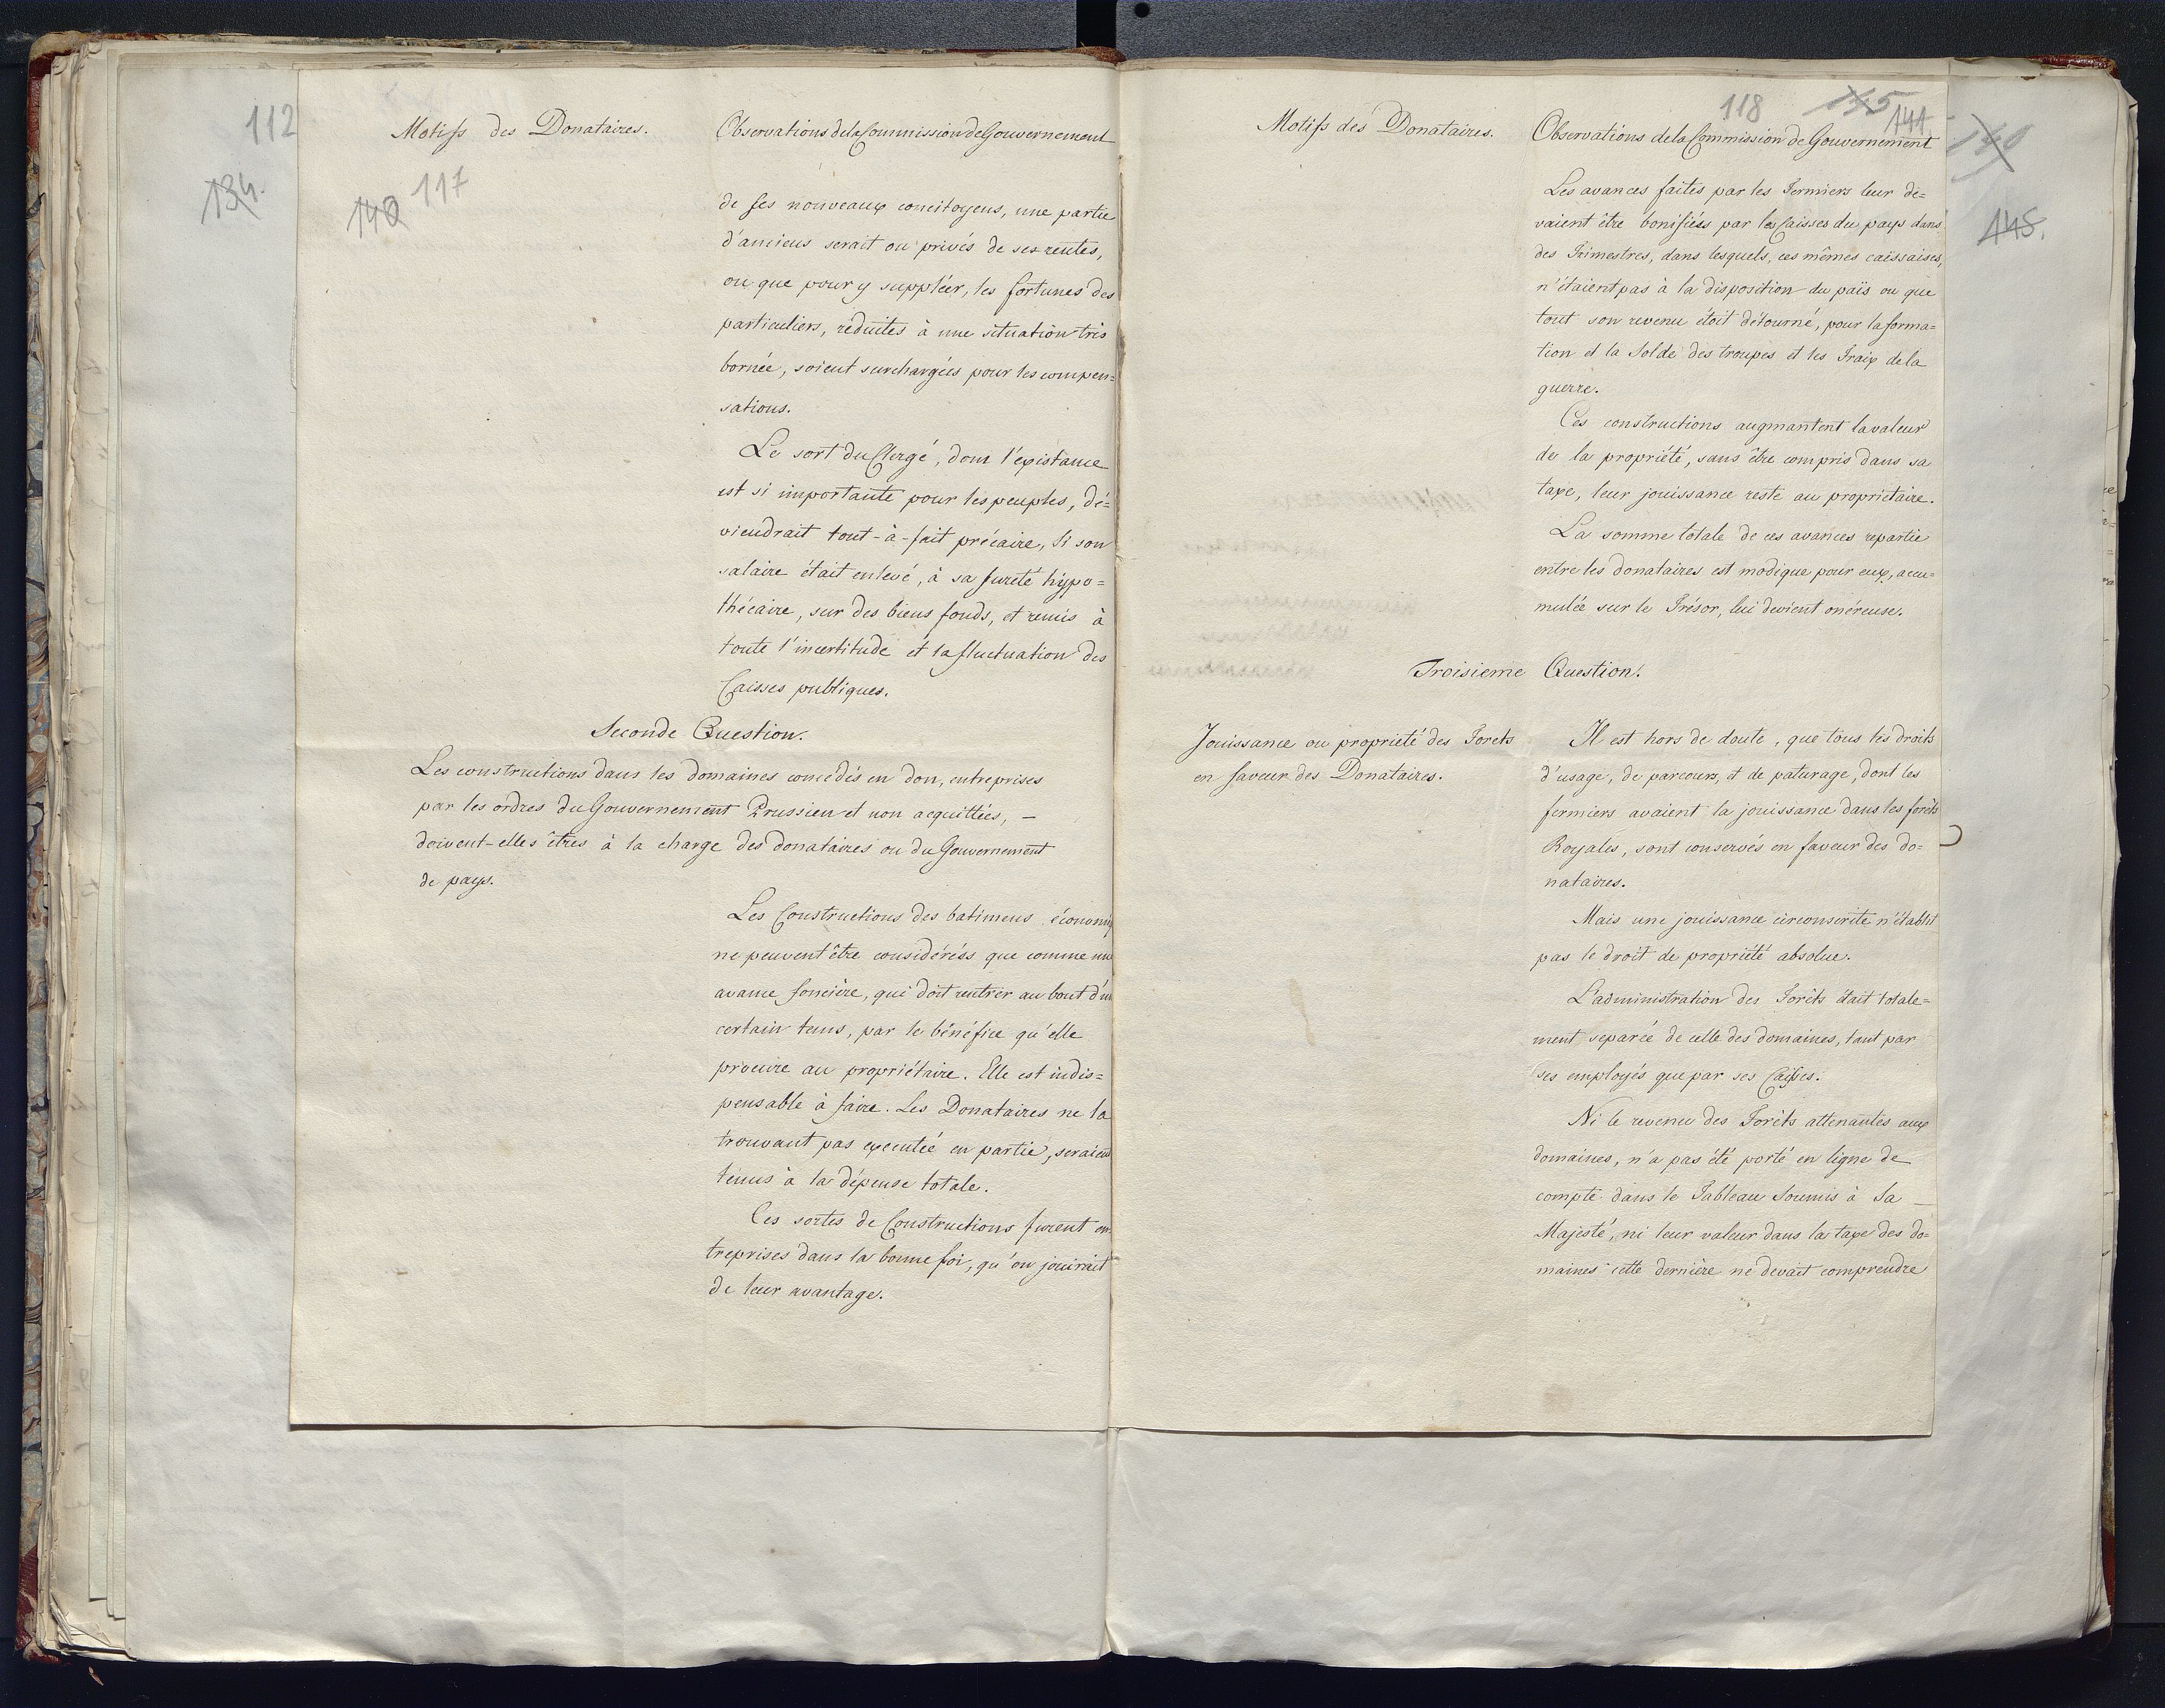 112
134.
140 117
Motifs des Donataires.
Observations de la Commission de Gouvernement
de ses nouveaux concitoyens, une partie
d'anciens serait ou privés de ses rentes,
ou que pour y suppléer, les fortunes des
particuliers, réduites à une situation très
bornée, soient surchargées pour les compen=
sations.
Le sort du Clergé, dont l'existance
est si importante pour les peuples, dé=
viendrait tout-à-fait précaire, si son
salaire était enlevé, à sa sureté hypo=
thécaire, sur des biens fonds, et remis à
toute l'incertitude et la fluctuation des
Caisses publiques.
Seconde Question.
Les constructions dans les domaines concédés en don, entreprises
par les ordres du Gouvernement Prussien et non acquittées, —
doivent-elles êtres à la charge des donataires ou du Gouvernement
de pays.
Les Constructions des batimens économiq
ne peuvent être considérées que comme une
avance foncière, qui doit rentrer au bout d'un
certain tems, par le bénéfice qu'elle
procure au propriétaire. Elle est indis=
pensable à faire. Les Donataires ne la
trouvant pas executée en partie, seraient
ténus à la dépense totale.
Ces sortes de Constructions furent en
treprises dans la bonne foi, qu'on jouirait
de leur avantage.
118 141
145.
Motifs des Donataires.
Observations de la Commission de Gouvernement
Les avances faites par les Fermiers leur de=
vaient être bonifiées par les Caisses du pays dans
des Trimestres, dans lesquels, ces mêmes caissaises,
n'étaient pas à la disposition du païs ou que
tout son revenu étoit détourné, pour la forma=
tion et la Solde des troupes et les Fraix de la
guerre.
Ces constructions augmantent la valeur
de la propriété, sans être compris dans sa
taxe, leur jouissance reste au propriétaire.
La somme totale de ces avances repartie
entre les donataires est modique pour eux, accu=
mulée sur le Trésor, lui devient onéreuse.
Troisieme Question.
Jouissance ou propriété des Forets
en faveur des Donataires.
Il est hors de doute, que tous les droits
d'usage, de parcours, et de paturage, dont les
fermiers avaient la jouissance dans les forêts
Royales, sont conservés en faveur des do=
nataires.
Mais une jouissance circonscrite n'établit
pas le droit de propriété absolue.
L'administration des Forêts était totale=
ment separée de celle des domaines, tant par
ses employés que par ses Caisses.
Ni le revenu des Forêts attenantes aux
domaines, n'a pas été porté en ligne de
compte dans le Tableau soumis à Sa —
Majesté, ni leur valeur dans la taxe des do=
maines cette dernière ne devait comprendre